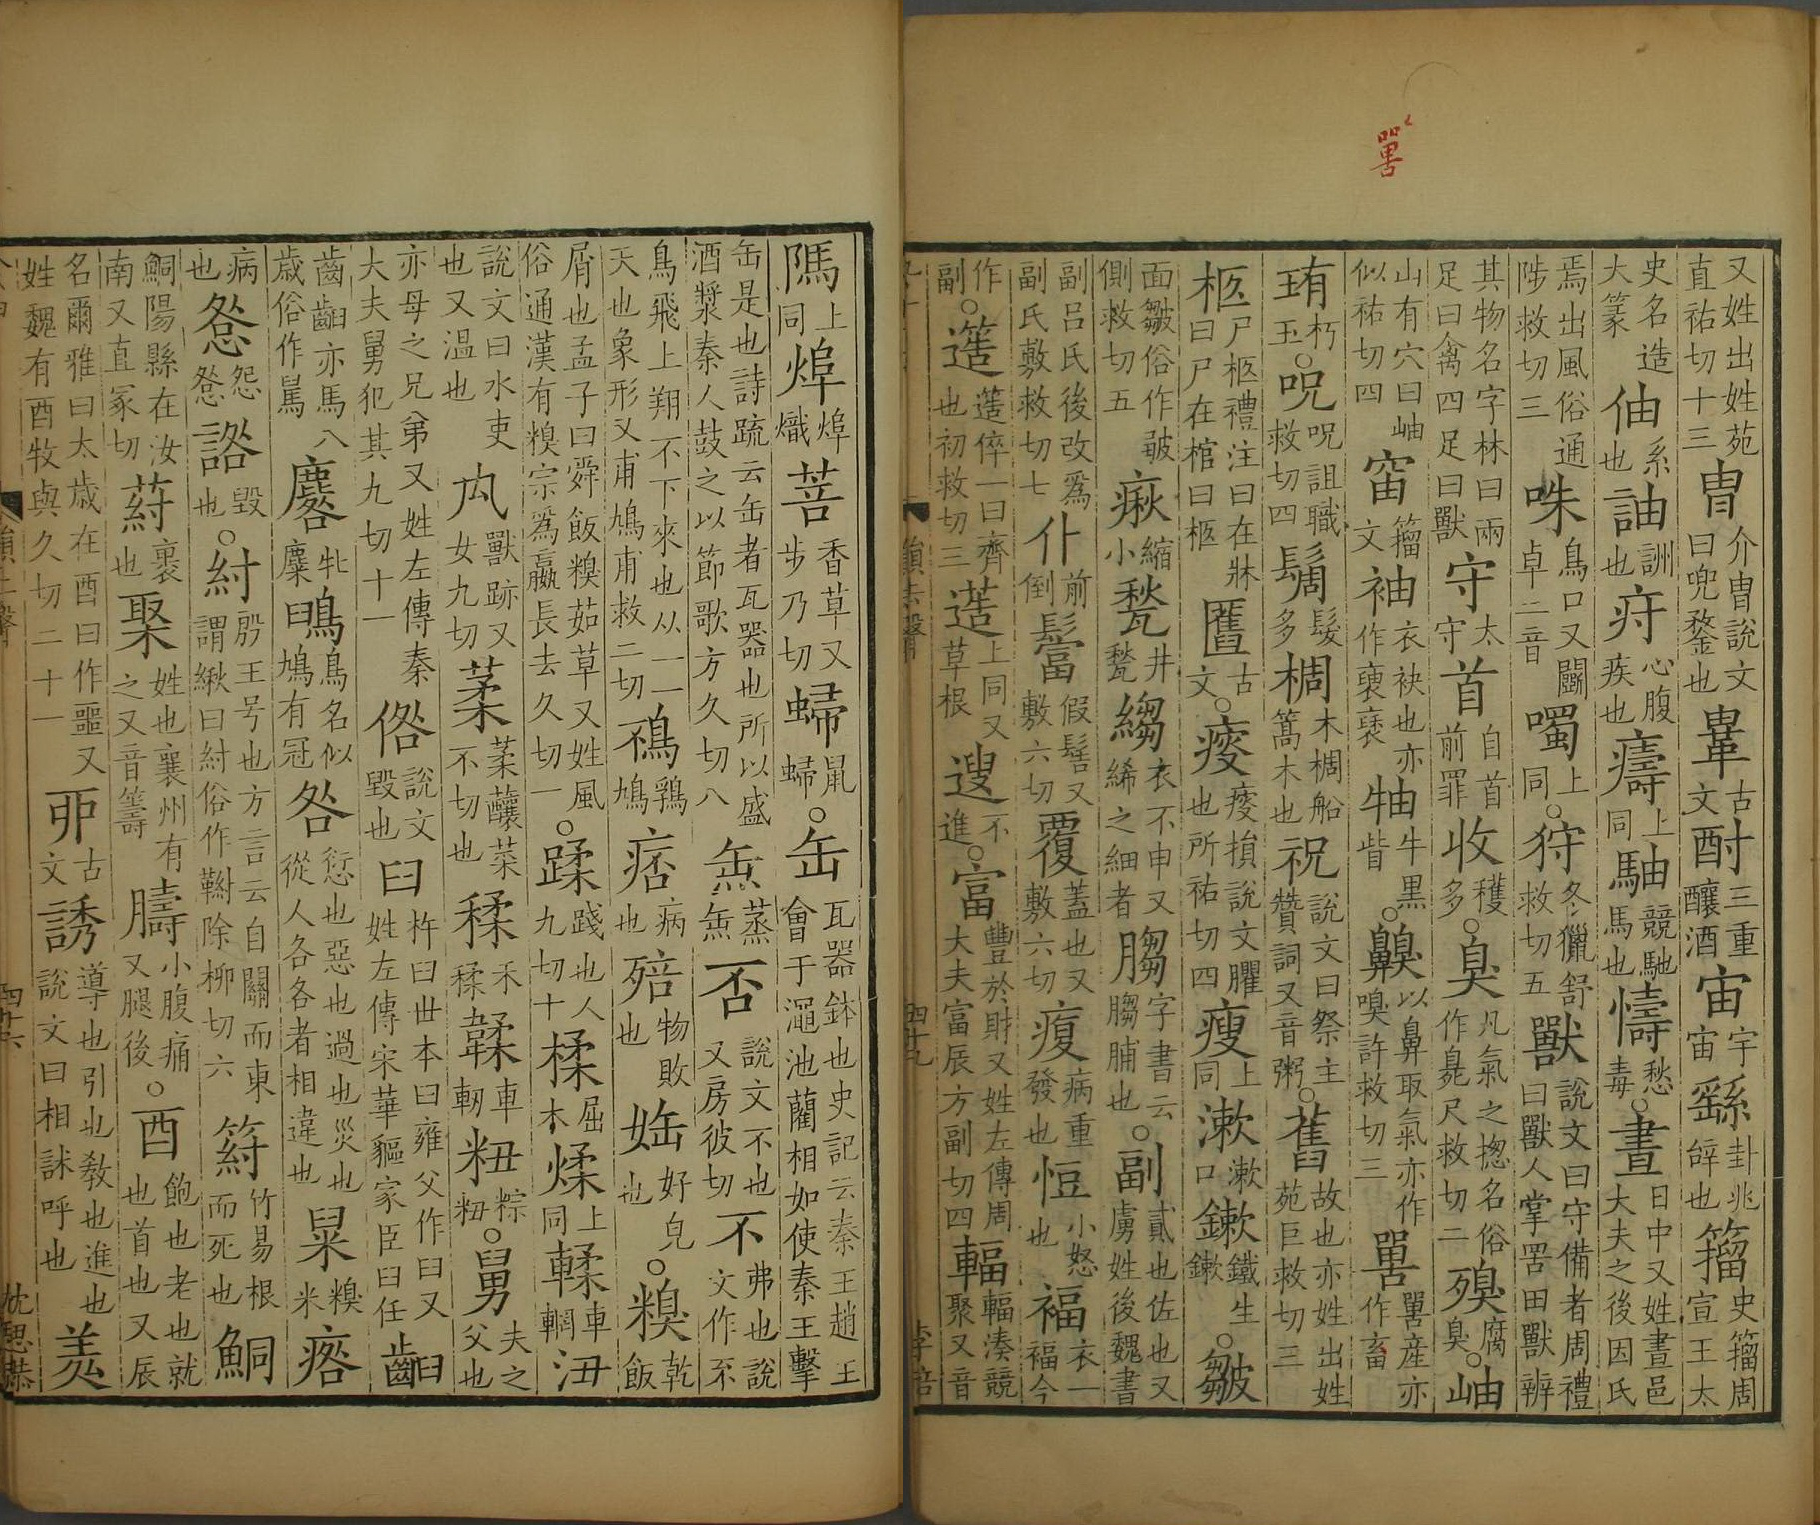 嘼
又姓出姓苑直祐切十三胄介胄說文曰兜鍪也䩜古文酎三重釀酒宙宇宙繇卦兆辭也籀史籀周宣王太
史名造大篆伷系也訓也㾈心腹疾也上同駎競馳馬也懤愁毒○晝日中又姓晝邑大夫之後因氏
焉出風俗通陟救切三咮鳥口又鬭卓二音噣上同○狩冬獵舒救切五獸說文曰守備者周禮曰獸人掌罟田獸辨
其物名字林曰兩足曰禽四足曰獸守太守首自首前罪收穫多○臭凡氣之揔名俗作臰尺救切二殠腐臭○岫
山有穴曰岫似祐切四籀文袖衣袂也亦作褎褏牰牛黑眥○齅以鼻取氣亦作嗅許救切三嘼嘼產亦作畜
珛朽玉○呪呪詛職救切四髮多椆木椆船篙木也祝說文曰祭主贊詞又音粥○舊故也亦姓出姓苑巨救切三
柩尸柩禮注曰在牀曰尸在棺曰柩匶古文○㾭㾭損說文臞也所祐切四瘦上同漱漱口鏉鐵生鏉○皺
面皺俗作皱側救切五瘷縮小甃井甃縐衣不申又絺之細者䐢字書云䐢脯也○副貳也佐也又虜姓後魏書
副吕氏後改爲副氏敷救切七仆前倒假髻又敷六切覆蓋也又敷六切病重發也小怒也福衣一福今
作副○簉簉倅一曰齊也初救切三上同又草根不進○富豐於財又姓左傳周大夫富辰方副切四輻輻湊競聚又音
隝上同㷆㷆熾菩香草又步乃切䗱鼠䗱○缶瓦器鉢也史記云秦王趙王會于澠池藺相如使秦王擊
缶是也詩疏云缶者瓦器也所以盛酒漿秦人鼓之以節歌方久切八缹蒸缹否說文不也又房彼切不弗也說文作𠀚
鳥飛上翔不下來也从一一天也象形又甫鳩甫救二切鴀鴀鳩痞病也殕物敗也㛅好皃也○糗乾飯
屑也孟子曰舜飯糗茹草又姓風俗通漢有糗宗爲嬴長去久切一○蹂踐也人九切十揉屈木煣上同輮車輞沑
說文曰水吏也又温也禸獸跡又女九切葇葇蘘菜不切也糅禾糅韖車軔粈粽粈○舅夫之父也
亦母之兄弟又姓左傳秦大夫舅犯其九切十一俗說文毀也臼杵臼世本曰雍父作臼又姓左傳宋華貙家臣臼任
齒齨亦馬八歲俗作𩢜麔牝麋鴖鳥名似鳩有冠咎愆也惡也過也災也從人各各者相違也糗米
病也怨怨毀也○紂殷王号也方言云自關而東謂緧曰紂俗作䋺除柳切六䈙竹易根而死也鮦
鮦陽縣在汝南又直冢切葤裹也聚姓也襄州有之又音籌小腹痛又腿後○酉飽也老也就也首也又辰
名爾雅曰太歲在酉曰作噩又姓魏有酉牧與久切二十一丣古文誘導也引也教也進也說文曰相訹呼也羑